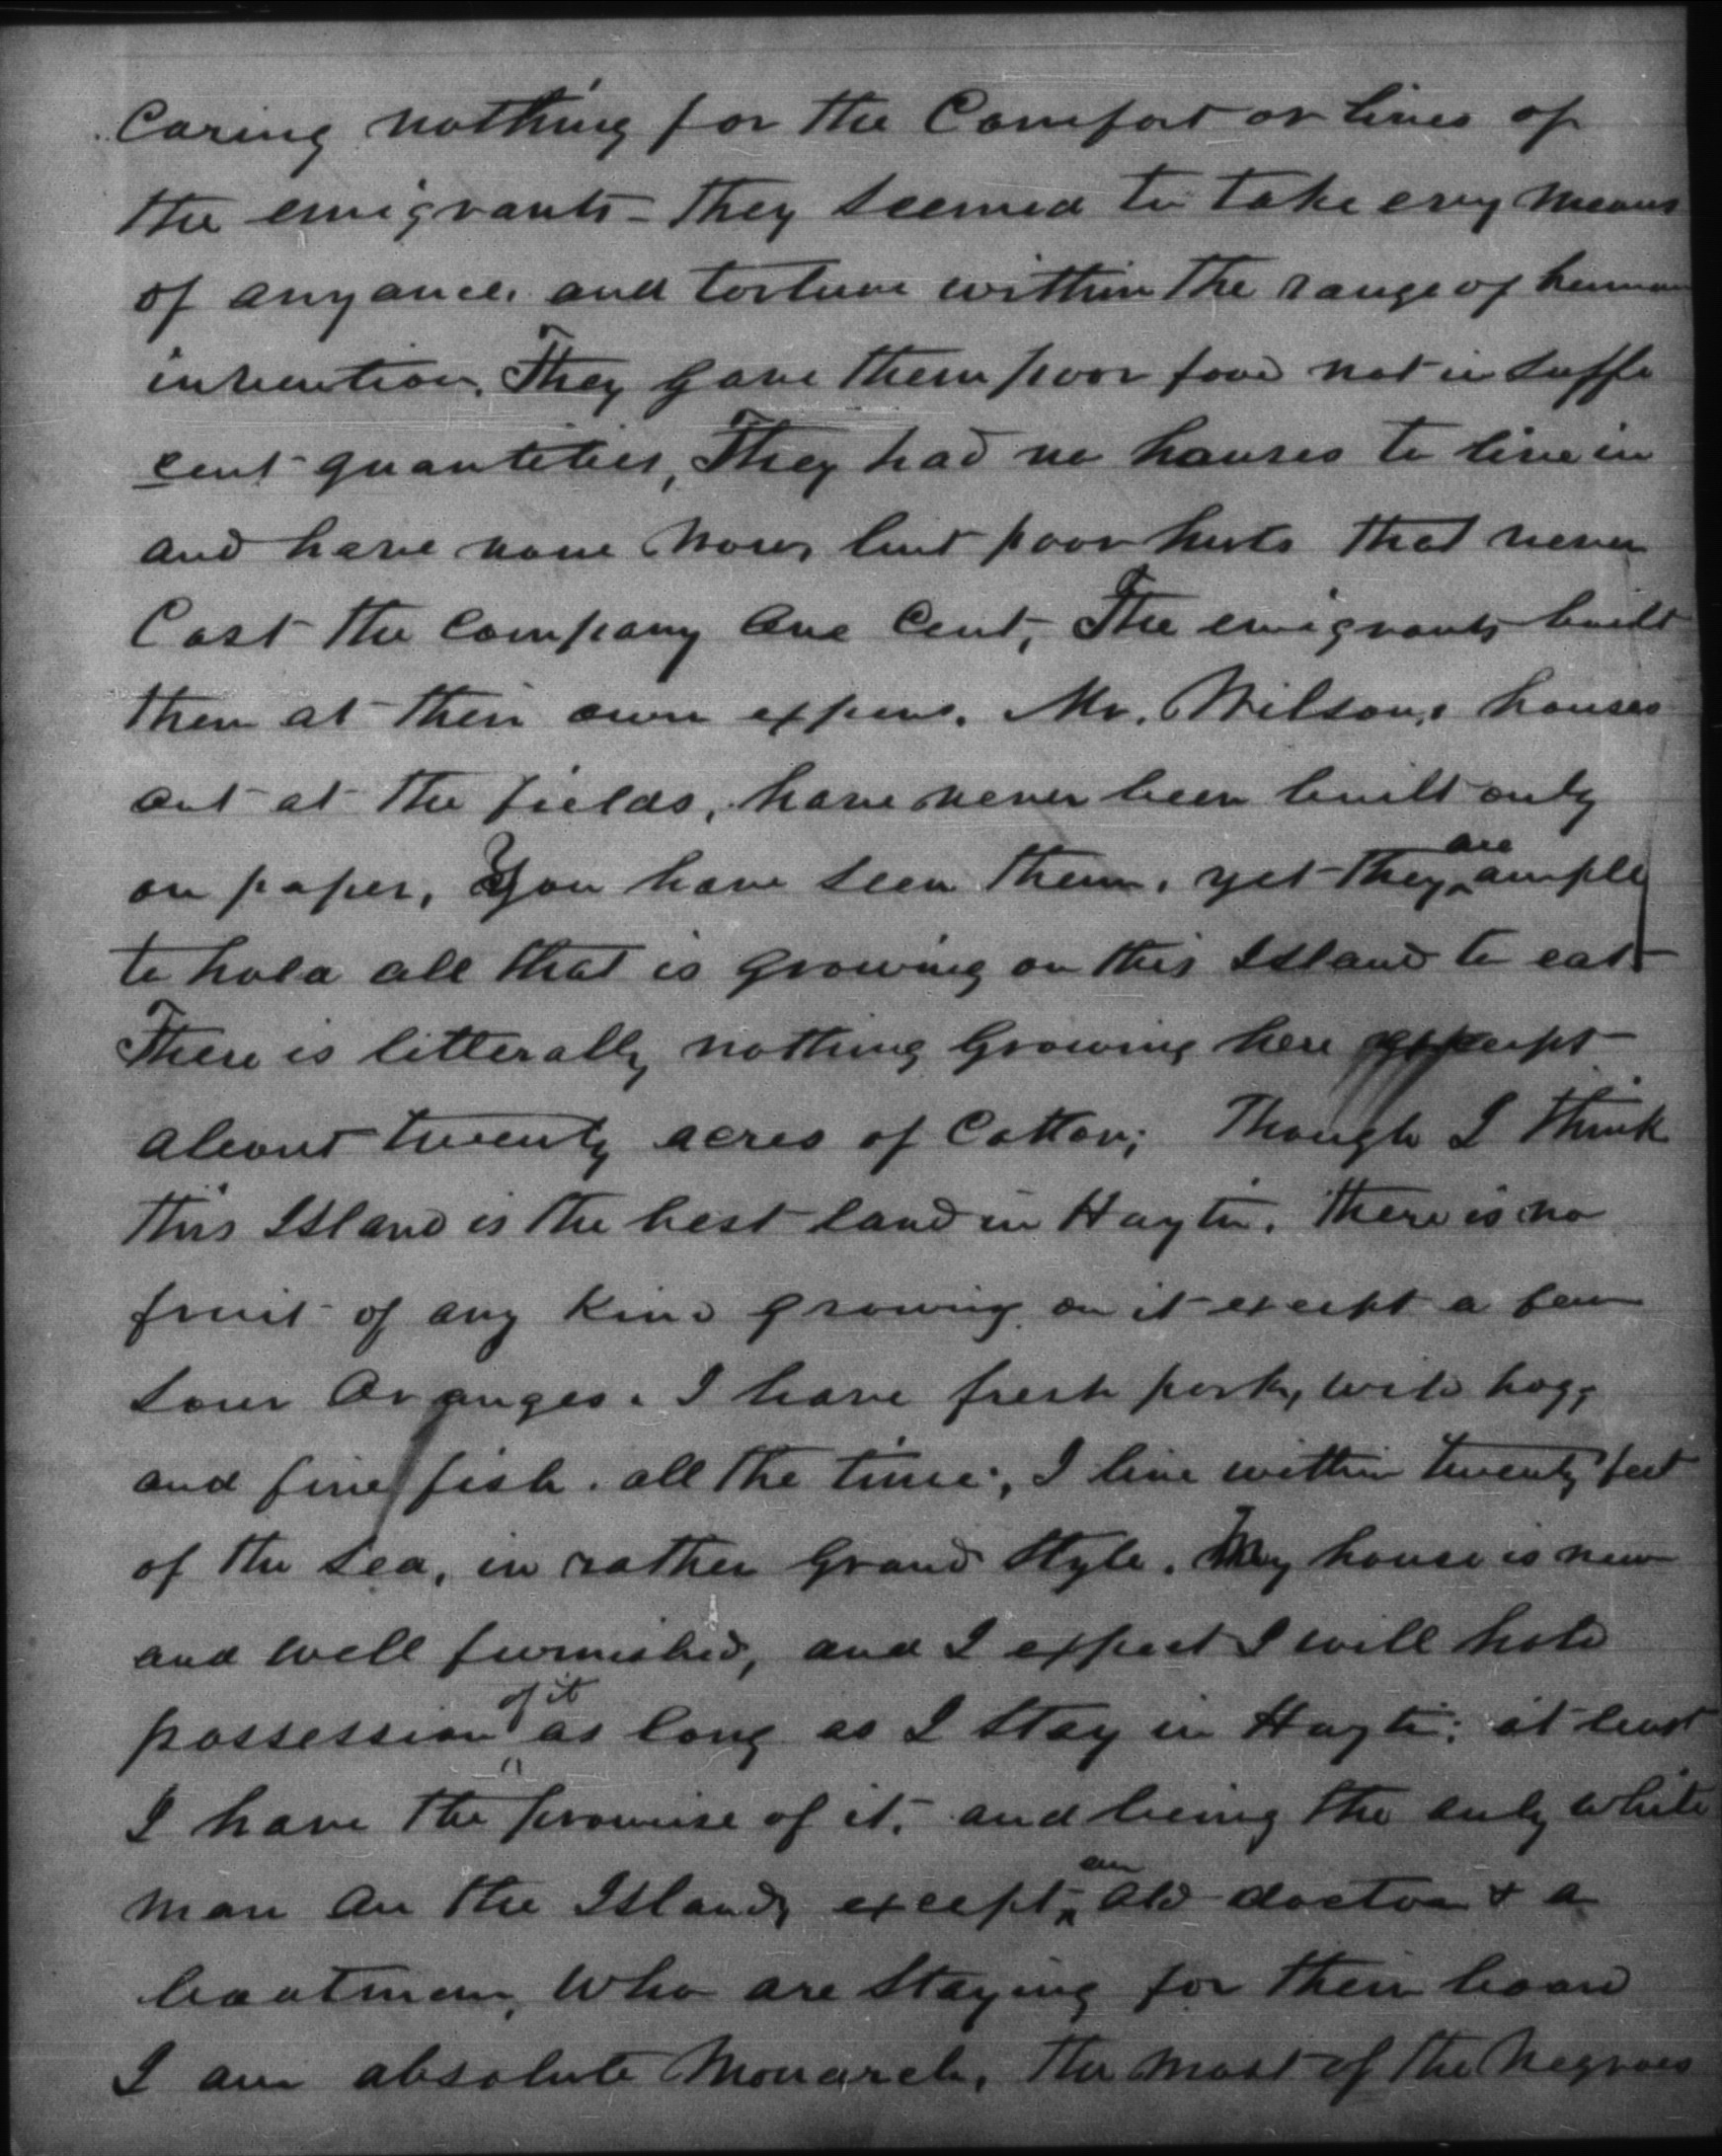 Caring nothing for the Comfort or lives of
the emigrants - They seemed to take evry means
of anyance, and torture within the range of human
invention. They gave them poor food not in suffi
cent quantities, They had no houses to live in
and have none now, but poor huts that never
Cost the company one cent, The emigrants built
them at their own expens. Mr. Wilson,s houses
out at the fields, have never been built only
on paper, You have seen them, yet they are ample
to hold all that is growing on this Island to eat
There is litterally nothing Growing here except
about twenty acres of Cotton; Though I think
this Island is the best land in Hayti. There is no
fruit of any kind growing on it except a few
sour Oranges. I have fresh pork, wild hog,
and fine fish. all the time; I live within twenty feet
of the sea, in rather Grand Style. My house is new
and well furnished, and I expect I will hold
possession of it as long as I stay in Hayti; at least
I have the promise of it, and being the only white
man on the Island, except an old doctor & a
boatman, who are staying for their board
I am absolute Monarch, The most of the Negroes